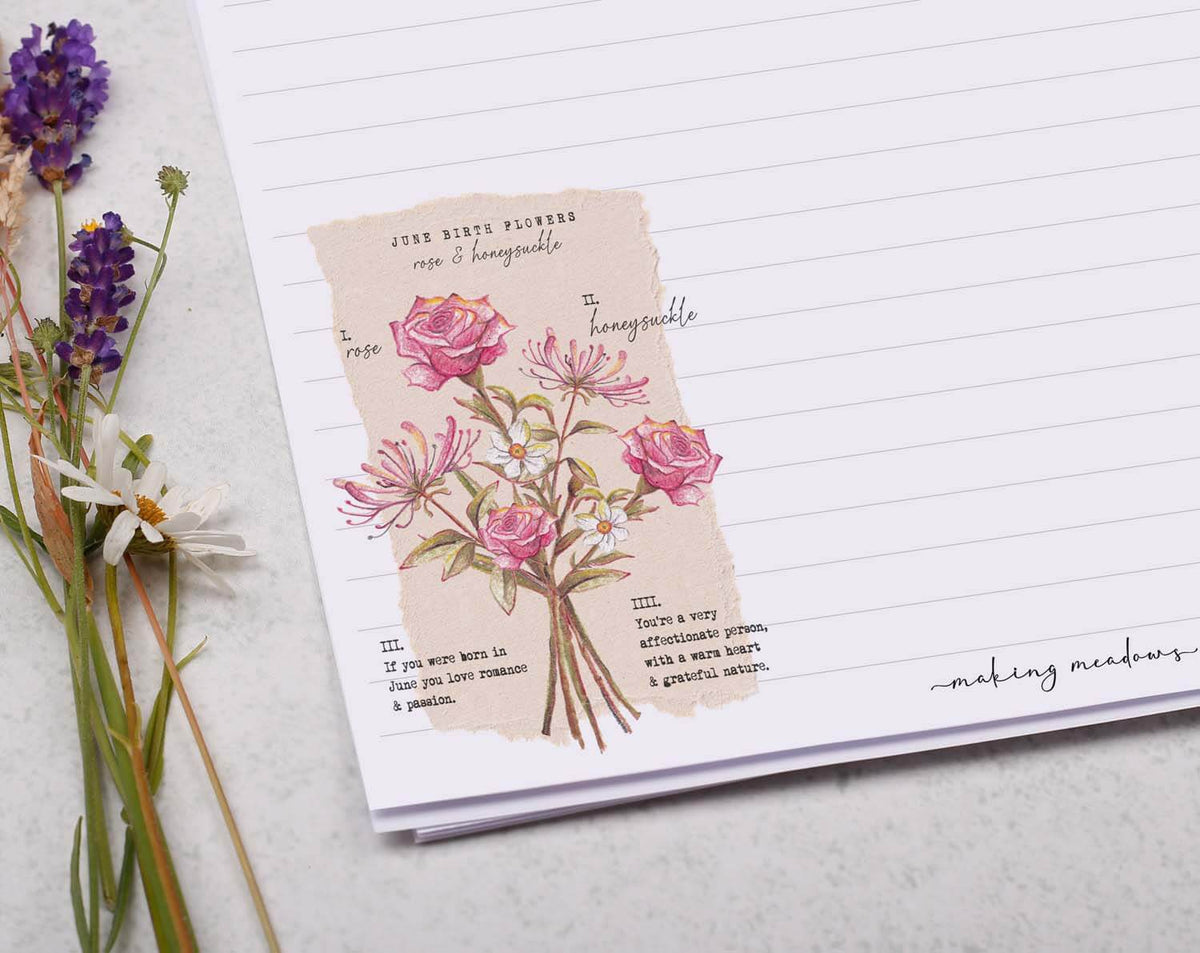 JUNE BIRTH FLOWERS
rose & honeysuckle
I.
rose
II.
honeysuckle
III.
If you were born in
June you love romance
& passion.
IIII.
You're a very
affectionate person,
with a warm heart
& grateful nature.
making meadows